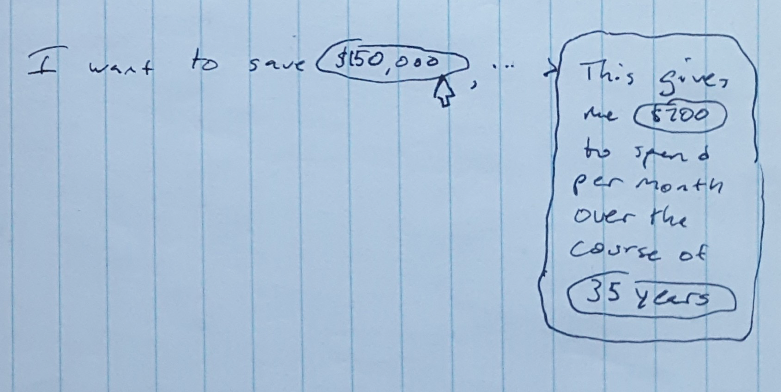 I want to save $150,000, ...
This gives
me $200
to spend
per month
over the
course of
35 years